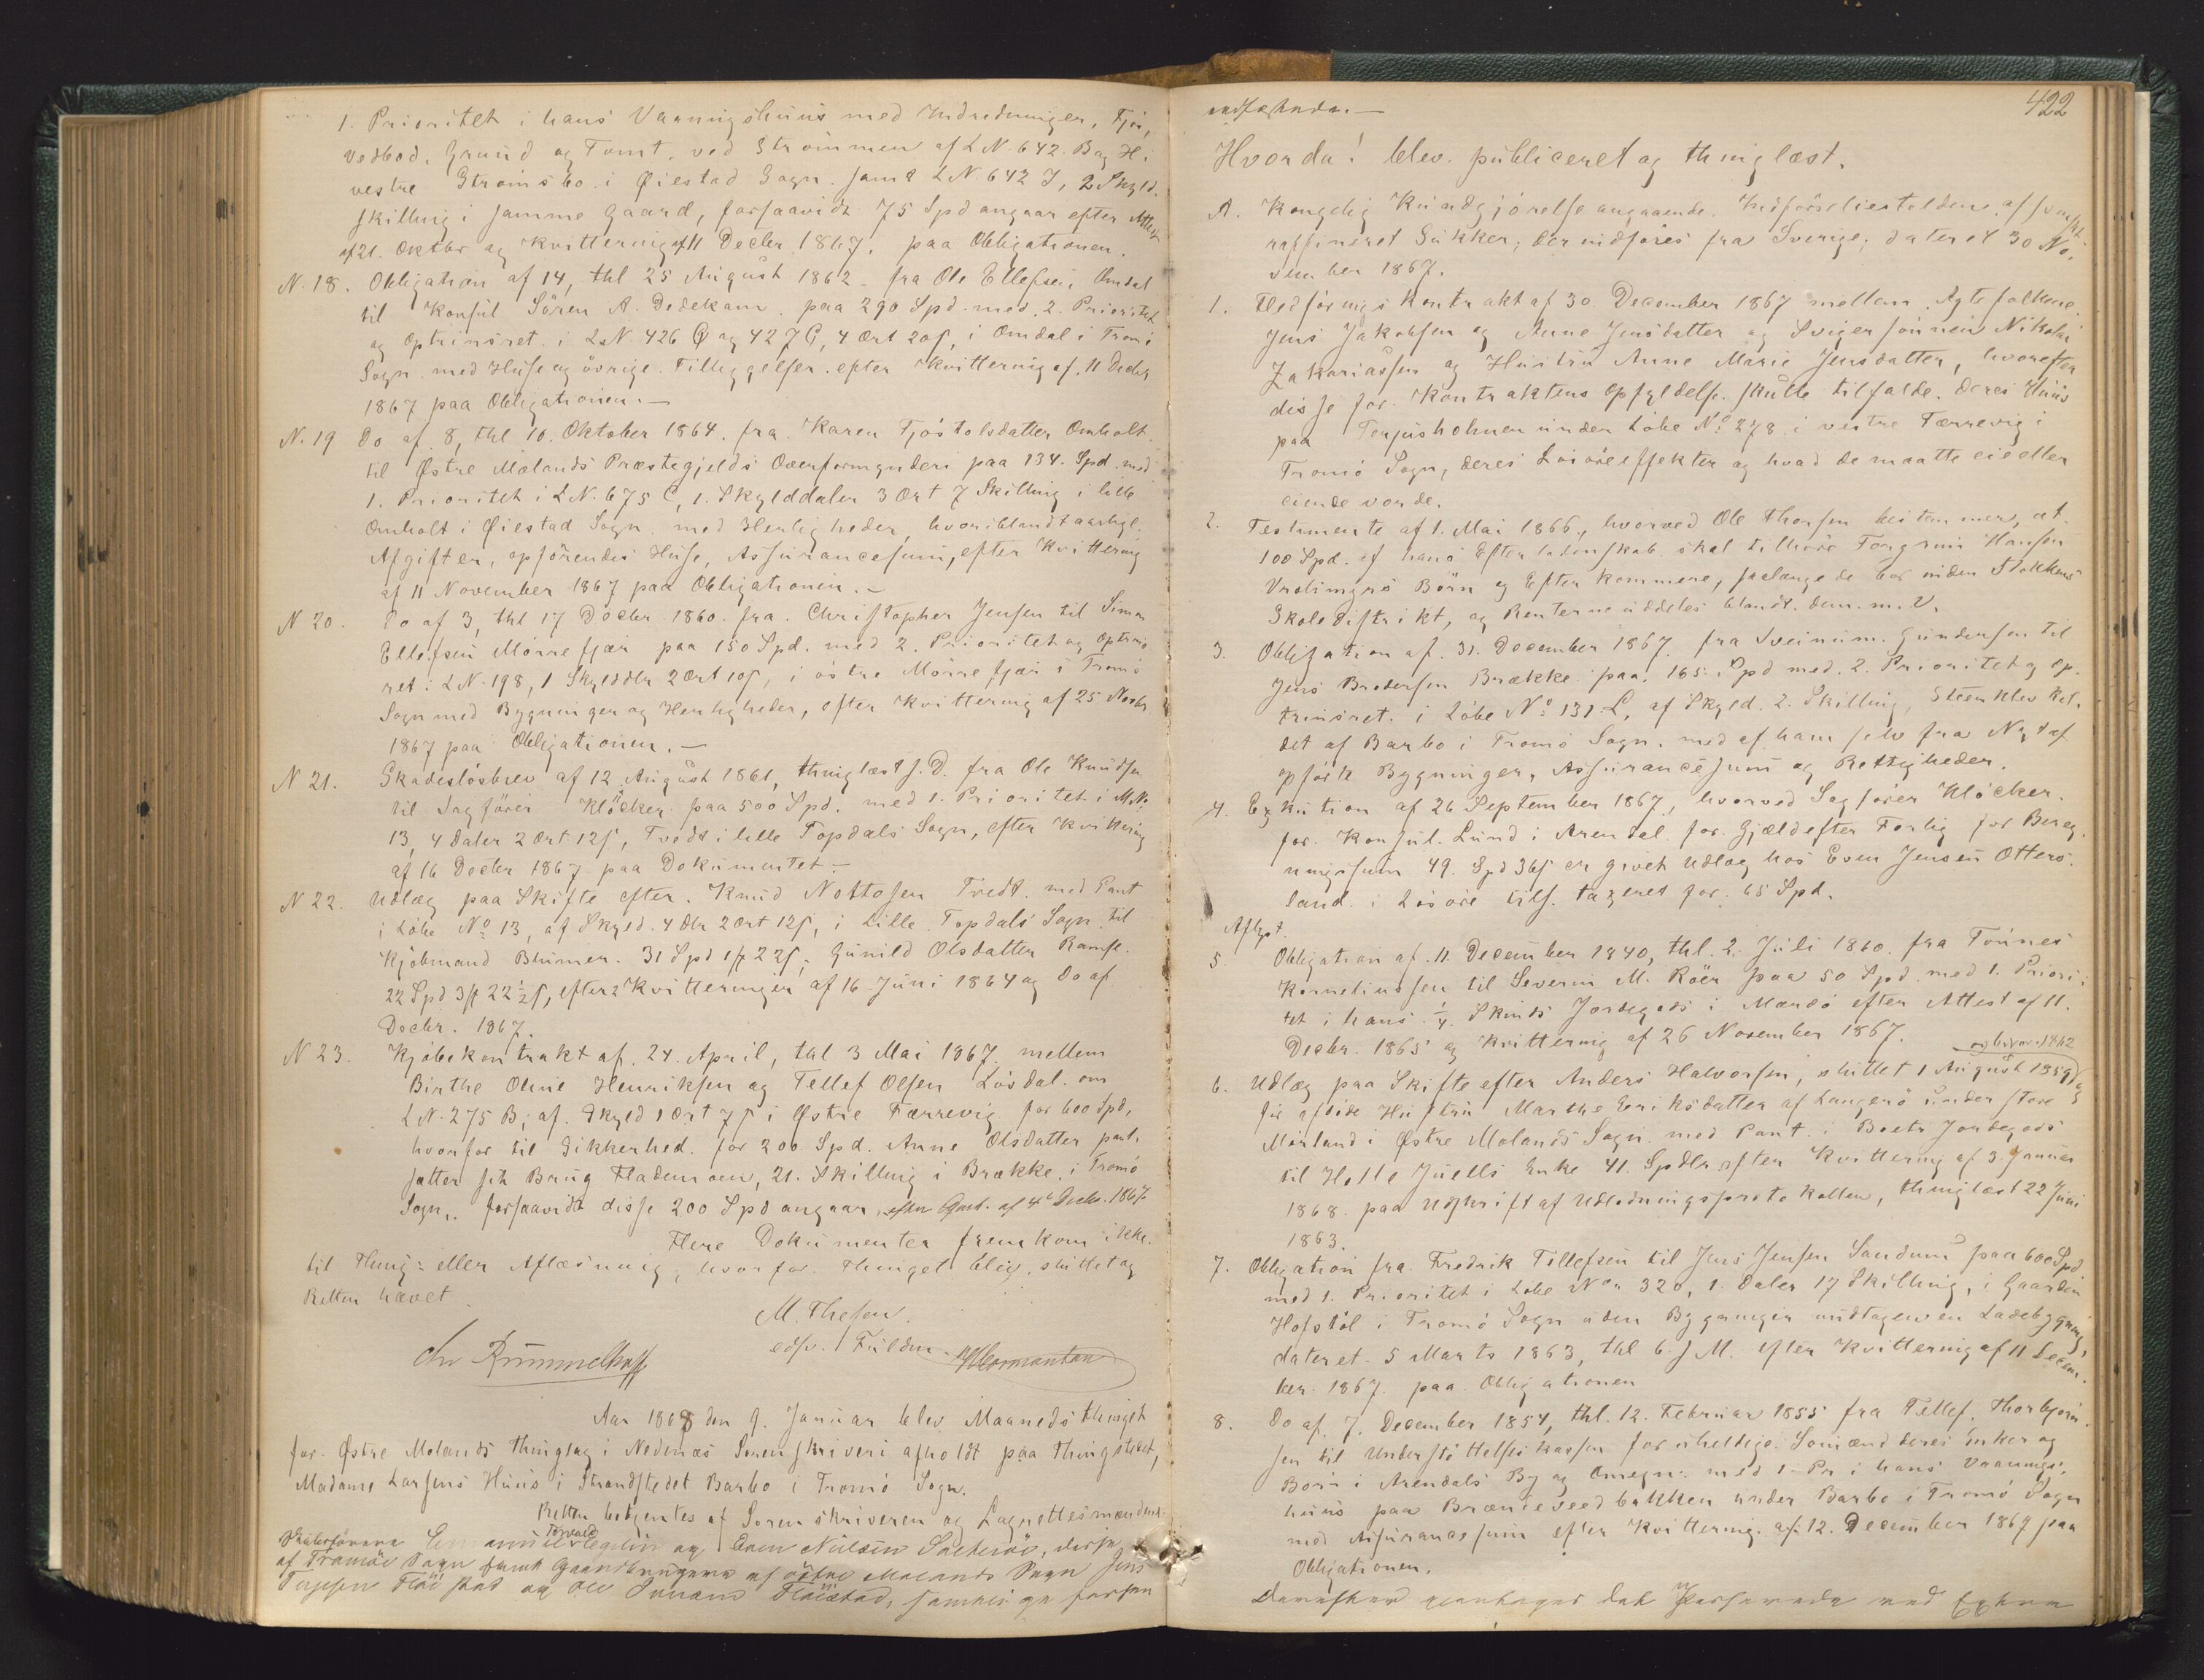 1. Prioritet i hans Vaaningshuus med Indredninger, Fjøs,
Vedbod, Grund og Tomt, ved Strømmen af L N. 642. B og H i
vestre Strømsbo i Øiestad Sogn samt L N. 642 I, 2 Skyld-
skilling i samme Gaard, forsaavidt 75 Spd angaar efter Attest
af 21. Oktbr og Kvittering af 11 Decbr 1867. paa Obligationen.
N. 18. Obligation af 14, thl 25 August 1862 fra Ole Ellefsen Omdal
til Konsul Sören A. Dedekam paa 290 Spd. med 2. Prioritet
og Optrinsret i L.N. 426 G og 427 G, 4 Ort 20 s, i Omdal i Tromö
Sogn med Huse og övrige Tilliggelser efter Kvittering af 11 Decbr
1867 paa Obligationen. —
N. 19 Do af 8, thl 10. Oktober 1864. fra Karen Tjöstolsdatter Omholt
til Østre Molands Præstegjelds Overformynderi paa 134. Spd. med
1. Prioritet i L N. 675 C, 1. Skylddaler 3 Ort 7 Skilling i lille
Omholt i Øiestad Sogn med Herligheder, hvoriblandt aarlige
Afgifter, opförendes Huse, Assurancesum, efter Kvittering
af 11 November 1867 paa Obligationen. —
N 20. Do af 3, thl 17 Decbr 1860. fra Christopher Jensen til Simon
Ellefsen Mörrefjær paa 150 Spd. med 2. Prioritet og Optrins-
ret i L N. 198, 1 Skylddlr 2 Ort 10 s, i östre Mörrefjær i Tromö
Sogn med Bygninger og Herligheder, efter Kvittering af 25 Novbr
1867 paa Obligationen. —
N 21. Skadeslösbrev af 12 August 1861, thinglæst s. D. fra Ole Knudsen
til Sagförer Klöcker paa 500 Spd. med 1. Prioritet i M.No
13, 4 Daler 2 Ort 12 s, Tvedt i lille Topdals Sogn, efter Kvittering
af 16 Decbr 1867 paa Dokumentet —
N 22. Udlæg paa Skifte efter Knud Nottosen Tvedt med Pant
i Löbe No 13, af Skyld. 4 Dlr 2 Ort 12 s, i Lille Topdals Sogn til
Kjöbmand Blumer 31 Spd 1 ₰ 22 s, Gunild Olsdatter Ramse
22 Spd 3 ₰ 22 ½ s, efter 2 Kvitteringer af 16 Juni 1864 og Do af
Decbr. 1867.
N 23. Kjöbekontrakt af 24. April, thl 3 Mai 1867 mellem
Birthe Oline Henriksen og Tellef Olsen Lövdal om
L N. 275 B, af Skyld 1 Ort 7 s i Østre Færrevig for 600 Spd,
hvorfor til Sikkerhed for 200 Spd. Anne Olsdatter pant-
sætter sit Brug Flademoen, 21. Skilling i Brække i Tromö
Sogn, forsaavidt disse 200 Spd angaar, efter Qvit. af 4de Decbr. 1867.
Flere Dokumenter fremkom ikke
til Thing- eller Aflæsning, hvorfor Thinget blev sluttet og
Retten hævet
M. Thesen
edsv. Fuldm.
Chr Rummelhoff
Aar 1868 den 9. Januar blev Maanedsthinget
for Østre Molands Thinglag i Nedenæs Sorenskriveri afholdt paa Thingstedet,
Madame Larsens Huus i Strandstedet Barbo i Tromö Sogn.
Retten betjentes af Sorenskriveren og Lagrettesmændene
Skibsförerne Emanuel Torvald og Even Nielsen, disse
af Tromöe Sogn samt Gaardbrugerne af östre Molands Sogn Jens
Terjesen Flöistad og Ole Flöistad, samtlige forhen
422
edfæstede. —
Hvorda! blev publiceret og thinglæst.
A. Kongelig Kundgjörelse angaaende Indförselstolden af svensk
raffineret Sukker, der indföres fra Sverige, dateret 30 No-
vember 1867.
1. Födföringskontrakt af 30 December 1867 mellem Ægtefolkene
Jens Jakobsen og Anne Jensdatter og Svigersönnen Nikolai
Zakariassen og Hustru Anne Marie Jensdatter, hvorefter
disse for Kontraktens Opfyldelse skulle tilfalde deres Huus
paa Terjusholmen under Löbe No 278 i vestre Færrevig i
Tromö Sogn, deres Lösöreeffekter og hvad de maatte eie eller
eiende vorde.
2. Testamente af 1. Mai 1866, hvorved Ole Thorsen bestemmer, at
100 Spd. af hans Efterladenskab skal tilhöre Torgrim Hansen
Vrolimyrs Börn og Efterkommere, saalænge de bor inden Stokkens
Skoledistrikt, og Renterne uddeles blandt dem. m. V.
3. Obligation af 31. December 1867 fra Sveinum Gundersen til
Jens Brodersen Brække paa 165 Spd med 2. Prioritet og Op-
trinsret i Löbe No 131. L, af Skyld. 2. Skilling, Steenklev kal-
det af Barbo i Tromö Sogn, med af ham selv fra Nyt af
opförte Bygninger, Assurancesum og Rettigheder.
4. Exekution af 26 September 1867, hvorved Sagförer Klöcker
for Konsul Lund i Arendal for Gjæld efter Forlig for Bereg-
ningssum 49. Spd 36 s er givet Udlæg hos Even Jensen Otters-
land i Lösöre tils. taxeret for 65 Spd.
Aflyst.
5. Obligation af 11. December 1840, thl. 2. Juli 1860. fra Tönnes
Korneliussen til Severin M. Röer paa 50 Spd med 1. Priori-
tet i hans ¼ Skinds Jordegods i Mærdö efter Attest af 11.
Decbr. 1865 og Kvittering af 26 November 1867.
6. Udlæg paa Skifte efter Anders Halvorsen, sluttet 1 August 1859 og
for afdöde Hustru Marthe Eriksdatter af Langerö under store
Mörland i Østre Molands Sogn med Pant i Boets Jordegods
til Holte Juells Enke 41. Spdlr efter Kvittering af 3. Januar
1868 paa Udskrift af Udlodningsprotokollen, thinglæst 22 Juni
1863.
7. Obligation fra Fredrik Tellefsen til Jens Jensen Sandum paa 600 Spd
med 1. Prioritet i Löbe Nor 320, 1. Daler 17 Skilling, i Gaarden
Hofstöl i Tromö Sogn uden Bygninger undtagen en Ladebygning,
dateret 5 Marts 1863, thl 6. s. M. efter Kvittering af 11 Decem-
ber 1867 paa Obligationen
8. Do af 7. December 1854, thl. 12. Februar 1855 fra Tellef Thorbjörn-
sen til Understöttelseskassen for uheldige Sömænd deres Enker og
Börn i Arendals By og Omegn: med 1 Pr i hans Vaanings-
huus paa Brændeveedbakken under Barbo i Tromö Sogn
med Assurancesum efter Kvittering af 12. December 1867 paa
Obligationen.